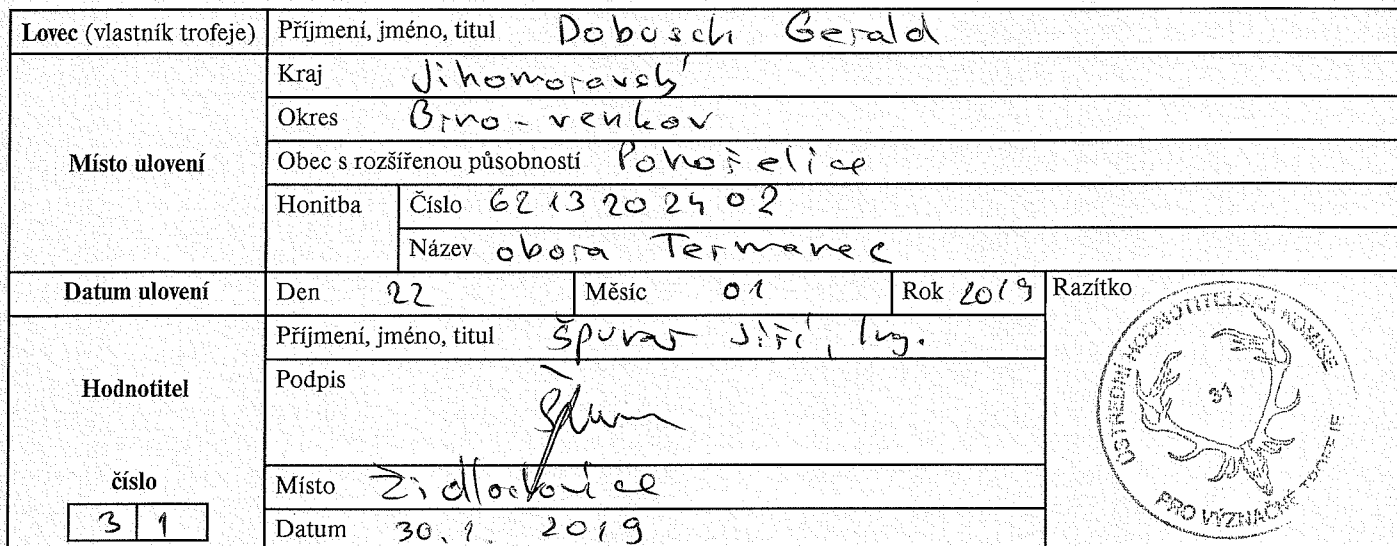 Lovec (vlastník trofeje) Příjmení, jméno, titul Dobusch Gerald
Kraj Jihomoravský
Okres Brno - venkov
Místo ulovení Obec s rozšířenou působností Pohořelice
Honitba Číslo 6213202402
Název obora Termanec
Datum ulovení Den 22 Měsíc 01 Rok 2019 Razítko
Příjmení, jméno, titul Jiří, Ing.
Hodnotitel Podpis
číslo Místo Židlochovice
3 1 Datum 30. 1. 2019
ÚSTŘEDNÍ HODNOTITELSKÁ KOMISE
31
PRO VÝZNAČNÉ TROFEJE